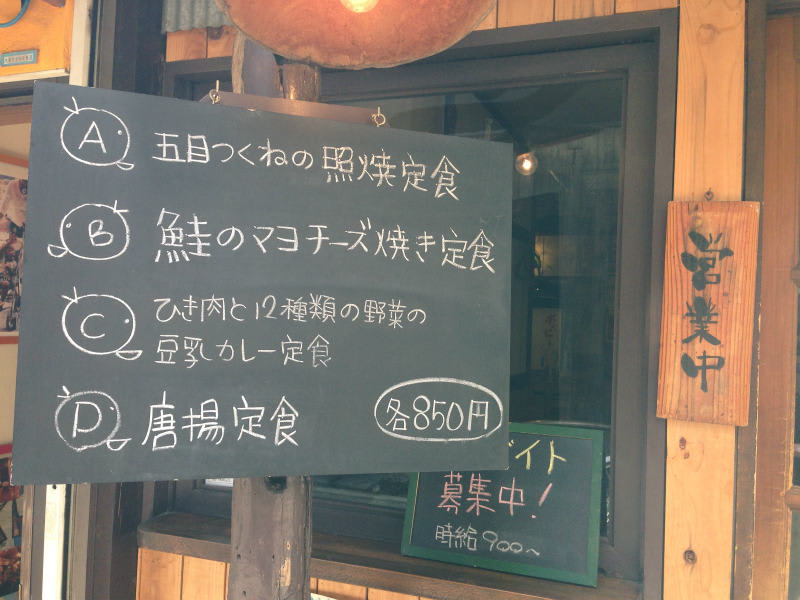 A 五目つくねの照焼定食
B 鮭のマヨチーズ焼き定食
C ひき肉と12種類の野菜の
豆乳カレー定食
D 唐揚定食
各850円
営業中
バイト
募集中!
時給900〜